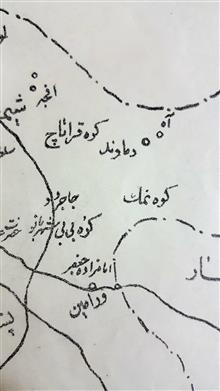 افجه
آه
کوه قراتاج
دماوند
کوه نمک
جاجرود
کوه بی بی
شهربانو
حضرت
امامزاده جعفر
ورامین